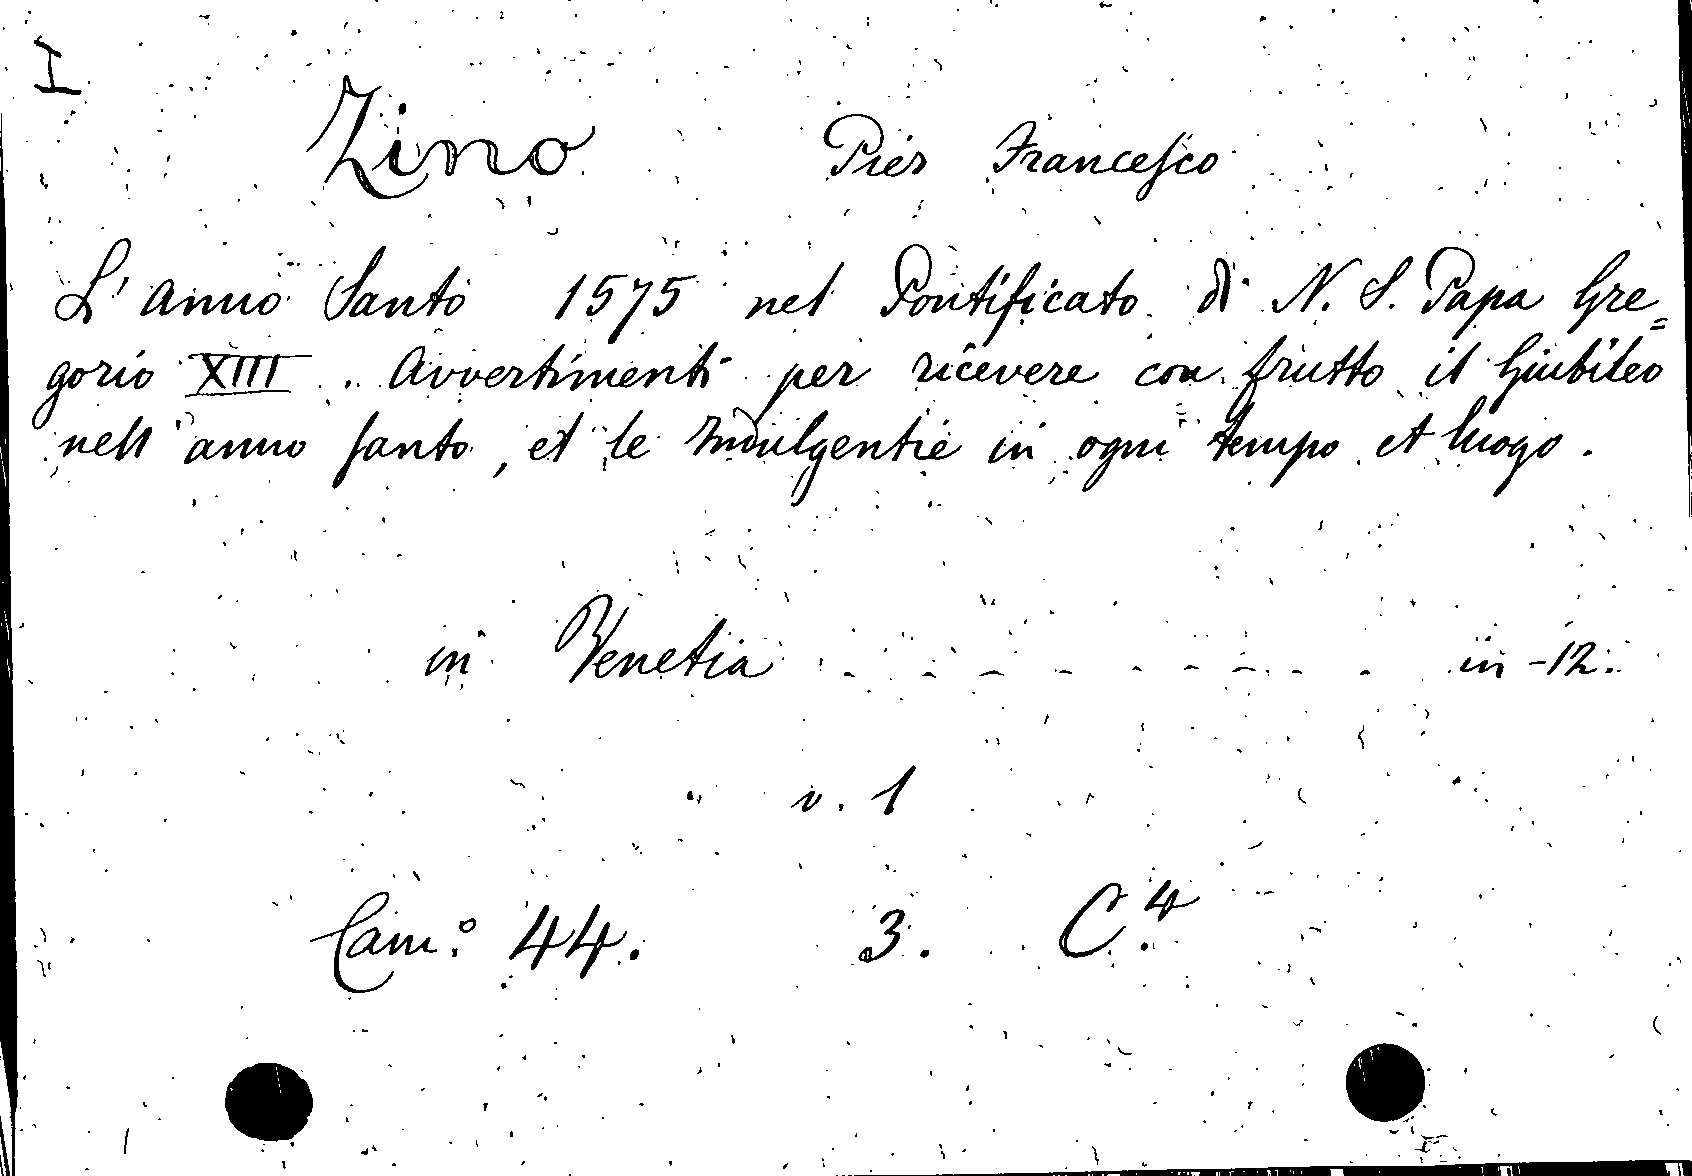 I
Zino Pier Francesco
L'anno Santo 1575 nel Pontificato di N. S. Papa Gre=
gorio XIII. Avvertimenti per ricevere con frutto il Giubileo
nell'anno santo, et le Indulgentie in ogni tempo et luogo.
in Venetia - - - - - - - - in-12.
v. 1
Cam.° 44. 3. C.4